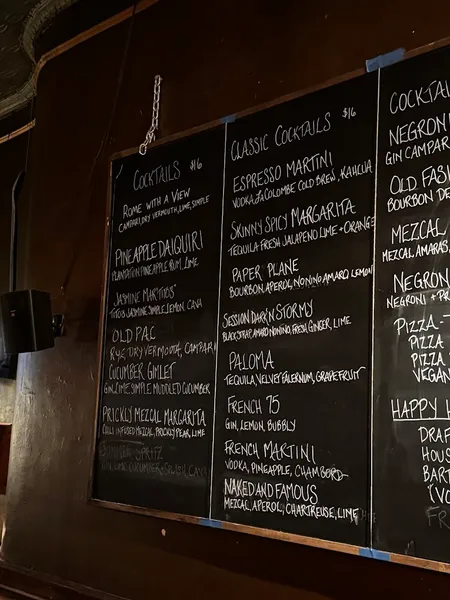 COCKTAILS $16
ROME WITH A VIEW
CAMPARI, DRY VERMOUTH, LIME, SIMPLE
PINEAPPLE DAIQUIRI
PLANTATION PINEAPPLE RUM, LIME
JASMINE
SIMPLE, LEMON, CAVA
OLD PAL
RYE, DRY VERMOUTH, CAMPARI
CUCUMBER GIMLET
GIN, LIME, SIMPLE, MUDDLED CUCUMBER
PRICKLY MEZCAL MARGARITA
CHILI INFUSED MEZCAL, PRICKLY PEAR, LIME
SPRITZ
CUCUMBER SPLASH, CAVA
CLASSIC COCKTAILS $16
ESPRESSO MARTINI
VODKA, LA COLOMBE COLD BREW, KAHLUA
SKINNY SPICY MARGARITA
TEQUILA FRESH JALAPENO LIME + ORANGE
PAPER PLANE
BOURBON, APEROL, NONINO AMARO, LEMON
SESSION DARK N STORMY
BLACK STRAP, AMARO NONINO, FRESH GINGER, LIME
PALOMA
TEQUILA, VELVET FALERNUM, GRAPEFRUIT
FRENCH 75
GIN, LEMON, BUBBLY
FRENCH MARTINI
VODKA, PINEAPPLE, CHAMBORD
NAKED AND FAMOUS
MEZCAL, APEROL, CHARTREUSE, LIME
COCKTAI
NEGRONI
GIN CAMPAR
OLD FASH
BOURBON DE
MEZCAL
MEZCAL, AMARAS,
NEGRONI
NEGRONI + PR
PIZZA -
PIZZA
PIZZA
VEGAN
HAPPY H
DRAF
HOUS
BART
(VO
FR